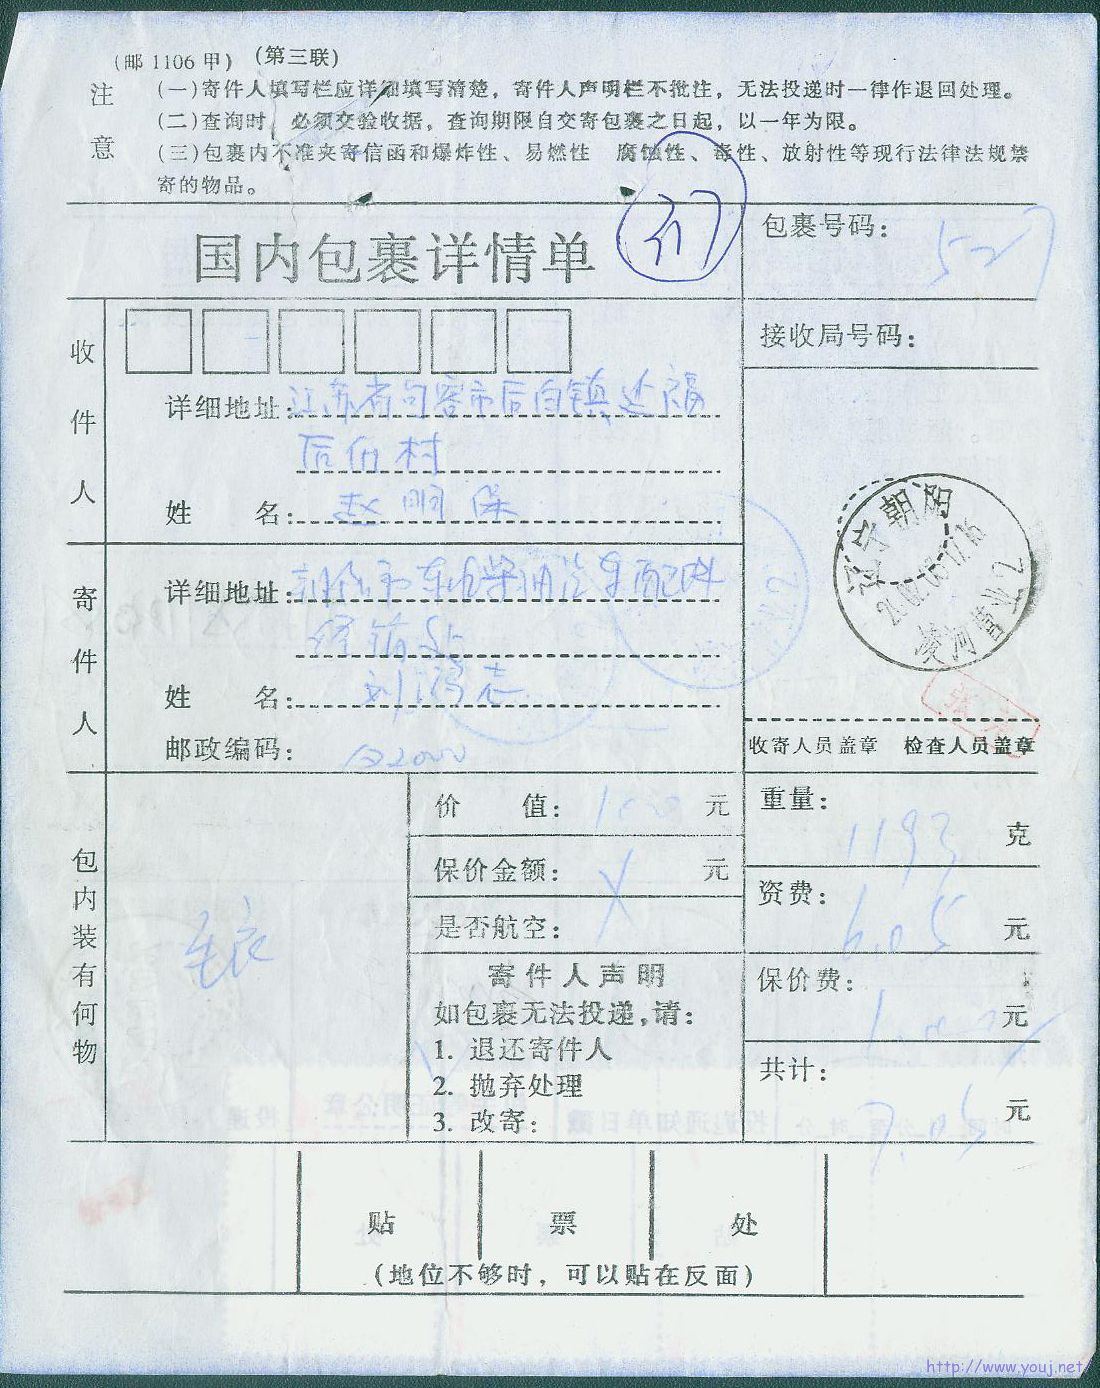 (邮 1106 甲) (第三联)
注意
(一)寄件人填写栏应详细填写清楚,寄件人声明栏不批注,无法投递时一律作退回处理。
(二)查询时,必须交验收据,查询期限自交寄包裹之日起,以一年为限。
(三)包裹内不准夹寄信函和爆炸性、易燃性 腐蚀性、毒性、放射性等现行法律法规禁
寄的物品。
国内包裹详情单
包裹号码: 527
接收局号码:
收件人
详细地址: 江苏省句容市后白镇
村
姓 名: 赵明保
寄件人
详细地址: 朝阳市东风柴油汽车配件
刘鸿志
姓 名:
邮政编码: 122000
辽宁朝阳
凌河营业2
收寄人员盖章 检查人员盖章
包内装有何物
毛衣
价 值: 100 元
保价金额: 元
是否航空:
寄件人声明
如包裹无法投递,请:
1. 退还寄件人
2. 抛弃处理
3. 改寄:
重量: 1193 克
资费: 6.05 元
保价费: 1.00 元
共计: 7.05 元
贴 票 处
(地位不够时,可以贴在反面)
http://www.youj.net